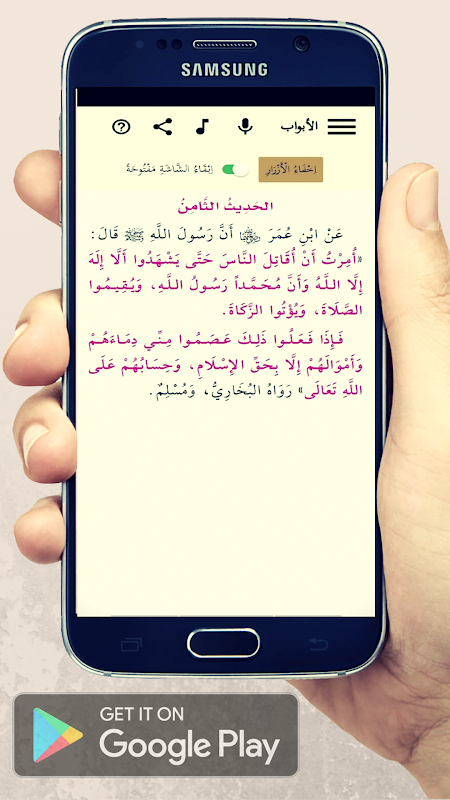 SAMSUNG
الأبواب
إخْفَاءُ الْأَزْرَارِ إبْقَاءُ الشَّاشَةِ مَفْتُوحَةً
الحَدِيثُ الثَّامِنُ
عَنْ ابْنِ عُمَرَ ﵄ أَنَّ رَسُولَ اللَّهِ ﷺ قَالَ:
«أُمِرْتُ أَنْ أُقَاتِلَ النَّاسَ حَتَّى يَشْهَدُوا أَلَّا إِلَهَ
إِلَّا اللَّهُ وَأَنَّ مُحَمَّداً رَسُولُ اللَّهِ، وَيُقِيمُوا
الصَّلَاةَ، وَيُؤْتُوا الزَّكَاةَ.
فَإِذَا فَعَلُوا ذَلِكَ عَصَمُوا مِنِّي دِمَاءَهُمْ
وَأَمْوَالَهُمْ إِلَّا بِحَقِّ الإِسْلَامِ، وَحِسَابُهُمْ عَلَى
اللَّهِ تَعَالَى» رَوَاهُ البُخَارِيُّ، وَمُسْلِمٌ.
GET IT ON
Google Play